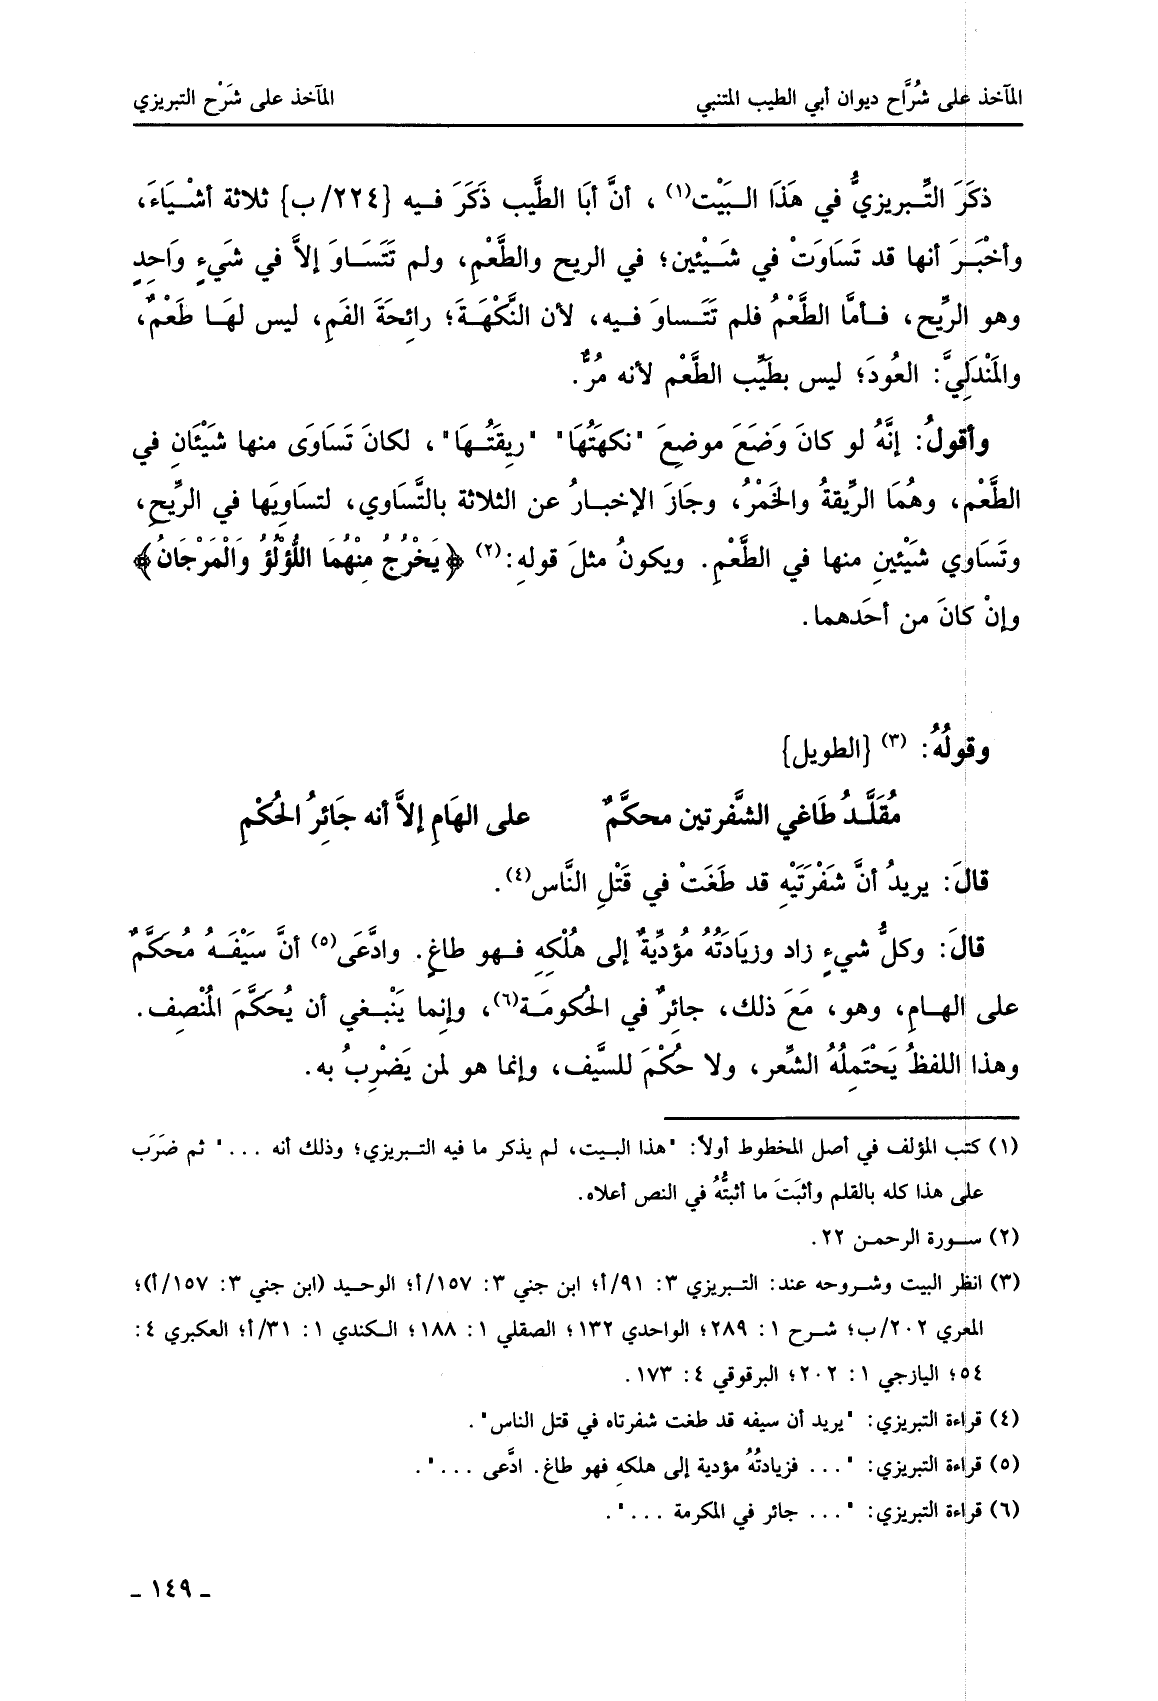 المآخذ على شُرَّاح ديوان أبي الطيب المتنبي المآخذ على شَرْح التبريزي
ذكَرَ التَّبريزيُّ في هَذَا البَيْت(١) ، أنَّ أبَا الطَّيب ذَكَرَ فيه {٢٢٤/ب} ثلاثة أشْيَاءَ،
وأخْبَرَ أنها قد تَسَاوَتْ في شَيْئين؛ في الريح والطَّعْمِ، ولم تَتَسَاوَ إلاَّ في شيءٍ وَاحِدٍ
وهو الرِّيح، فأمَّا الطَّعْمُ فلم تَتَساوَ فيه، لأن النَّكْهَةَ؛ رائِحَةَ الفَمِ، ليس لهَا طَعْمٌ،
والمَنْدَلِيَّ: العُودَ؛ ليس بطَيِّب الطَّعْم لأنه مُرٌّ.
وأقولُ: إنَّهُ لو كانَ وَضَعَ موضِعَ "نكهَتُهَا" "ريقَتُهَا"، لكانَ تَسَاوَى منها شَيْئَانِ في
الطَّعْمِ، وهُمَا الرِّيقةُ والخَمْرُ، وجَازَ الإخبارُ عن الثلاثة بالتَّسَاوي، لتسَاوِيَها في الرِّيحِ،
وتَسَاوي شَيْئينِ منها في الطَّعْمِ. ويكونُ مثلَ قولهِ:(٢) ﴿يَخْرُجُ مِنْهُمَا اللُّؤْلُؤُ وَالْمَرْجَانُ﴾
وإنْ كانَ من أحَدهما.
وقولُهُ: (٣) {الطويل}
مُقَلَّدُ طَاغي الشَّفرتين محكَّمٌ على الهَامِ إلاَّ أنه جَائِرُ الحُكْمِ
قالَ: يريدُ أنَّ شَفْرَتَيْهِ قد طَغَتْ في قَتْلِ النَّاس(٤).
قالَ: وكلُّ شيءٍ زاد وزيَادَتُهُ مُؤدِّيةٌ إلى هُلْكِهِ فهو طاغٍ. وادَّعَى(٥) أنَّ سَيْفَهُ مُحَكَّمٌ
على الهامِ، وهو، مَعَ ذلك، جائرٌ في الحُكومَة(٦)، وإنما يَنْبغي أن يُحَكَّمَ المُنْصِف.
وهذا اللفظُ يَحْتَمِلُهُ الشِّعر، ولا حُكْمَ للسَّيف، وإنما هو لمن يَضْرِبُ به.
(١) كتب المؤلف في أصل المخطوط أولاً: "هذا البيت، لم يذكر ما فيه التبريزي؛ وذلك أنه ..." ثم ضَرَب
على هذا كله بالقلم وأثبَتَ ما أثبتُّهُ في النص أعلاه.
(٢) سورة الرحمن ٢٢.
(٣) انظر البيت وشروحه عند: التبريزي ٣: ٩١/أ؛ ابن جني ٣: ١٥٧/أ؛ الوحيد (ابن جني ٣: ١٥٧/أ)؛
المعري ٢٠٢/ب؛ شرح ١: ٢٨٩؛ الواحدي ١٣٢؛ الصقلي ١: ١٨٨؛ الكندي ١: ٣١/أ؛ العكبري ٤:
٥٤؛ اليازجي ١: ٢٠٢؛ البرقوقي ٤: ١٧٣.
(٤) قراءة التبريزي: "يريد أن سيفه قد طغت شفرتاه في قتل الناس".
(٥) قراءة التبريزي: "... فزيادتُهُ مؤدية إلى هلكهِ فهو طاغ. ادَّعى ...".
(٦) قراءة التبريزي: "... جائر في المكرمة ...".
ـ ١٤٩ ـ